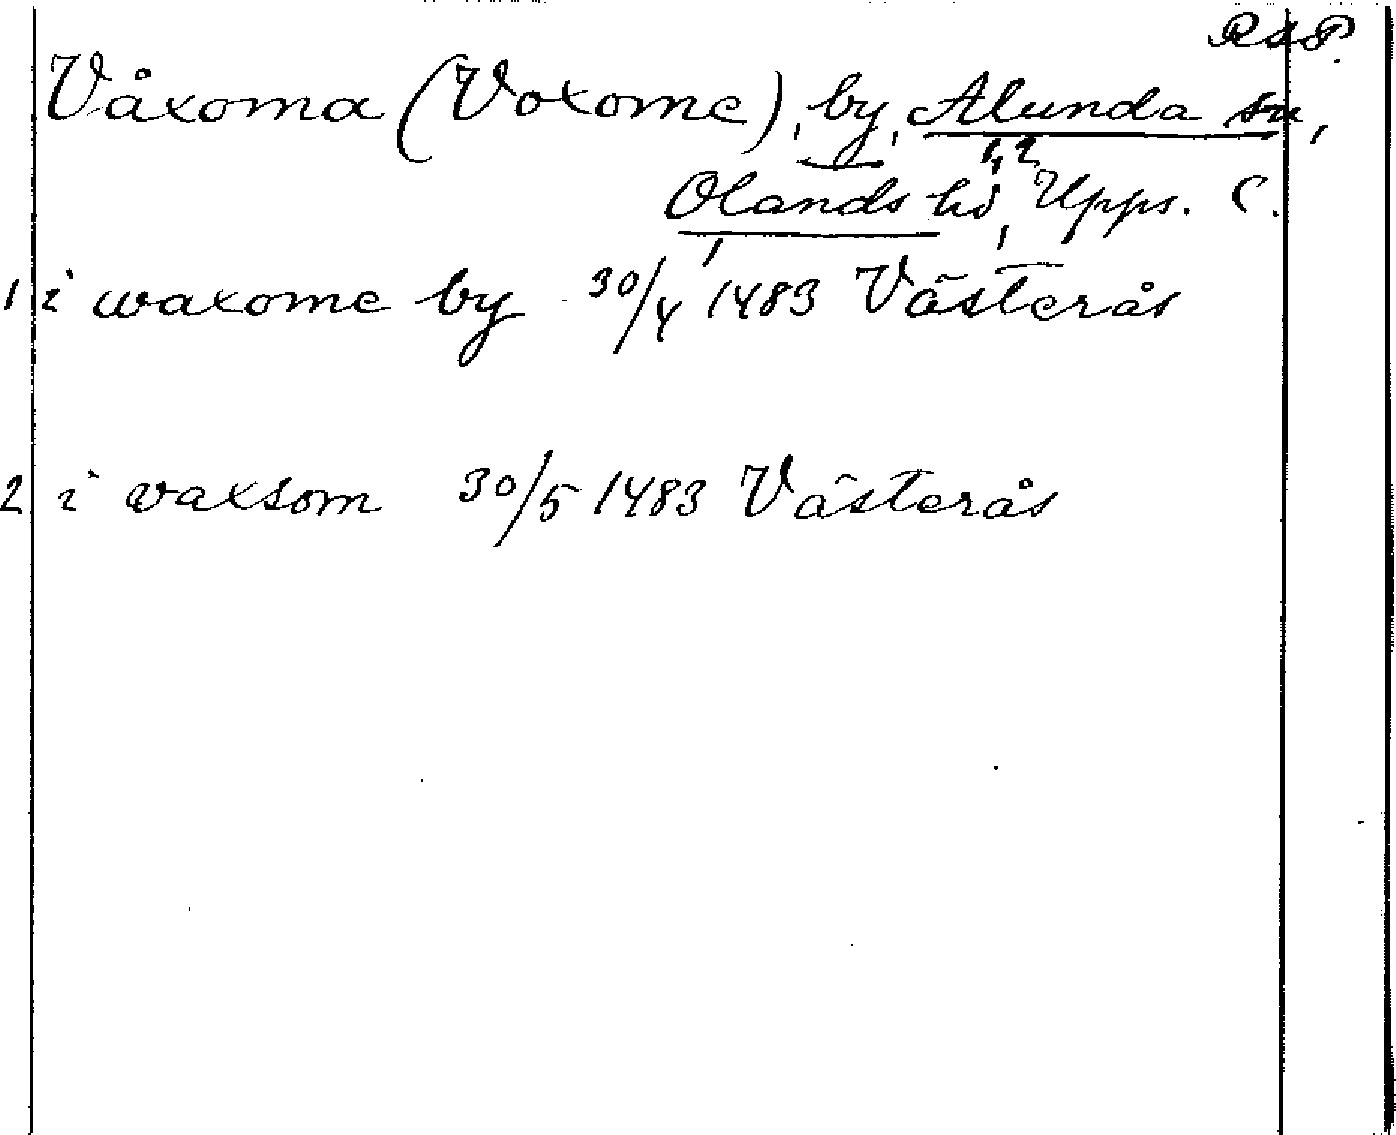 RAP.
Våxoma (Voxome), by, Alunda sn,
1, 2
Olands hd, Upps. C.
1 i waxome by 30/4 1483 Västerås
2 i waxsom 30/5 1483 Västerås